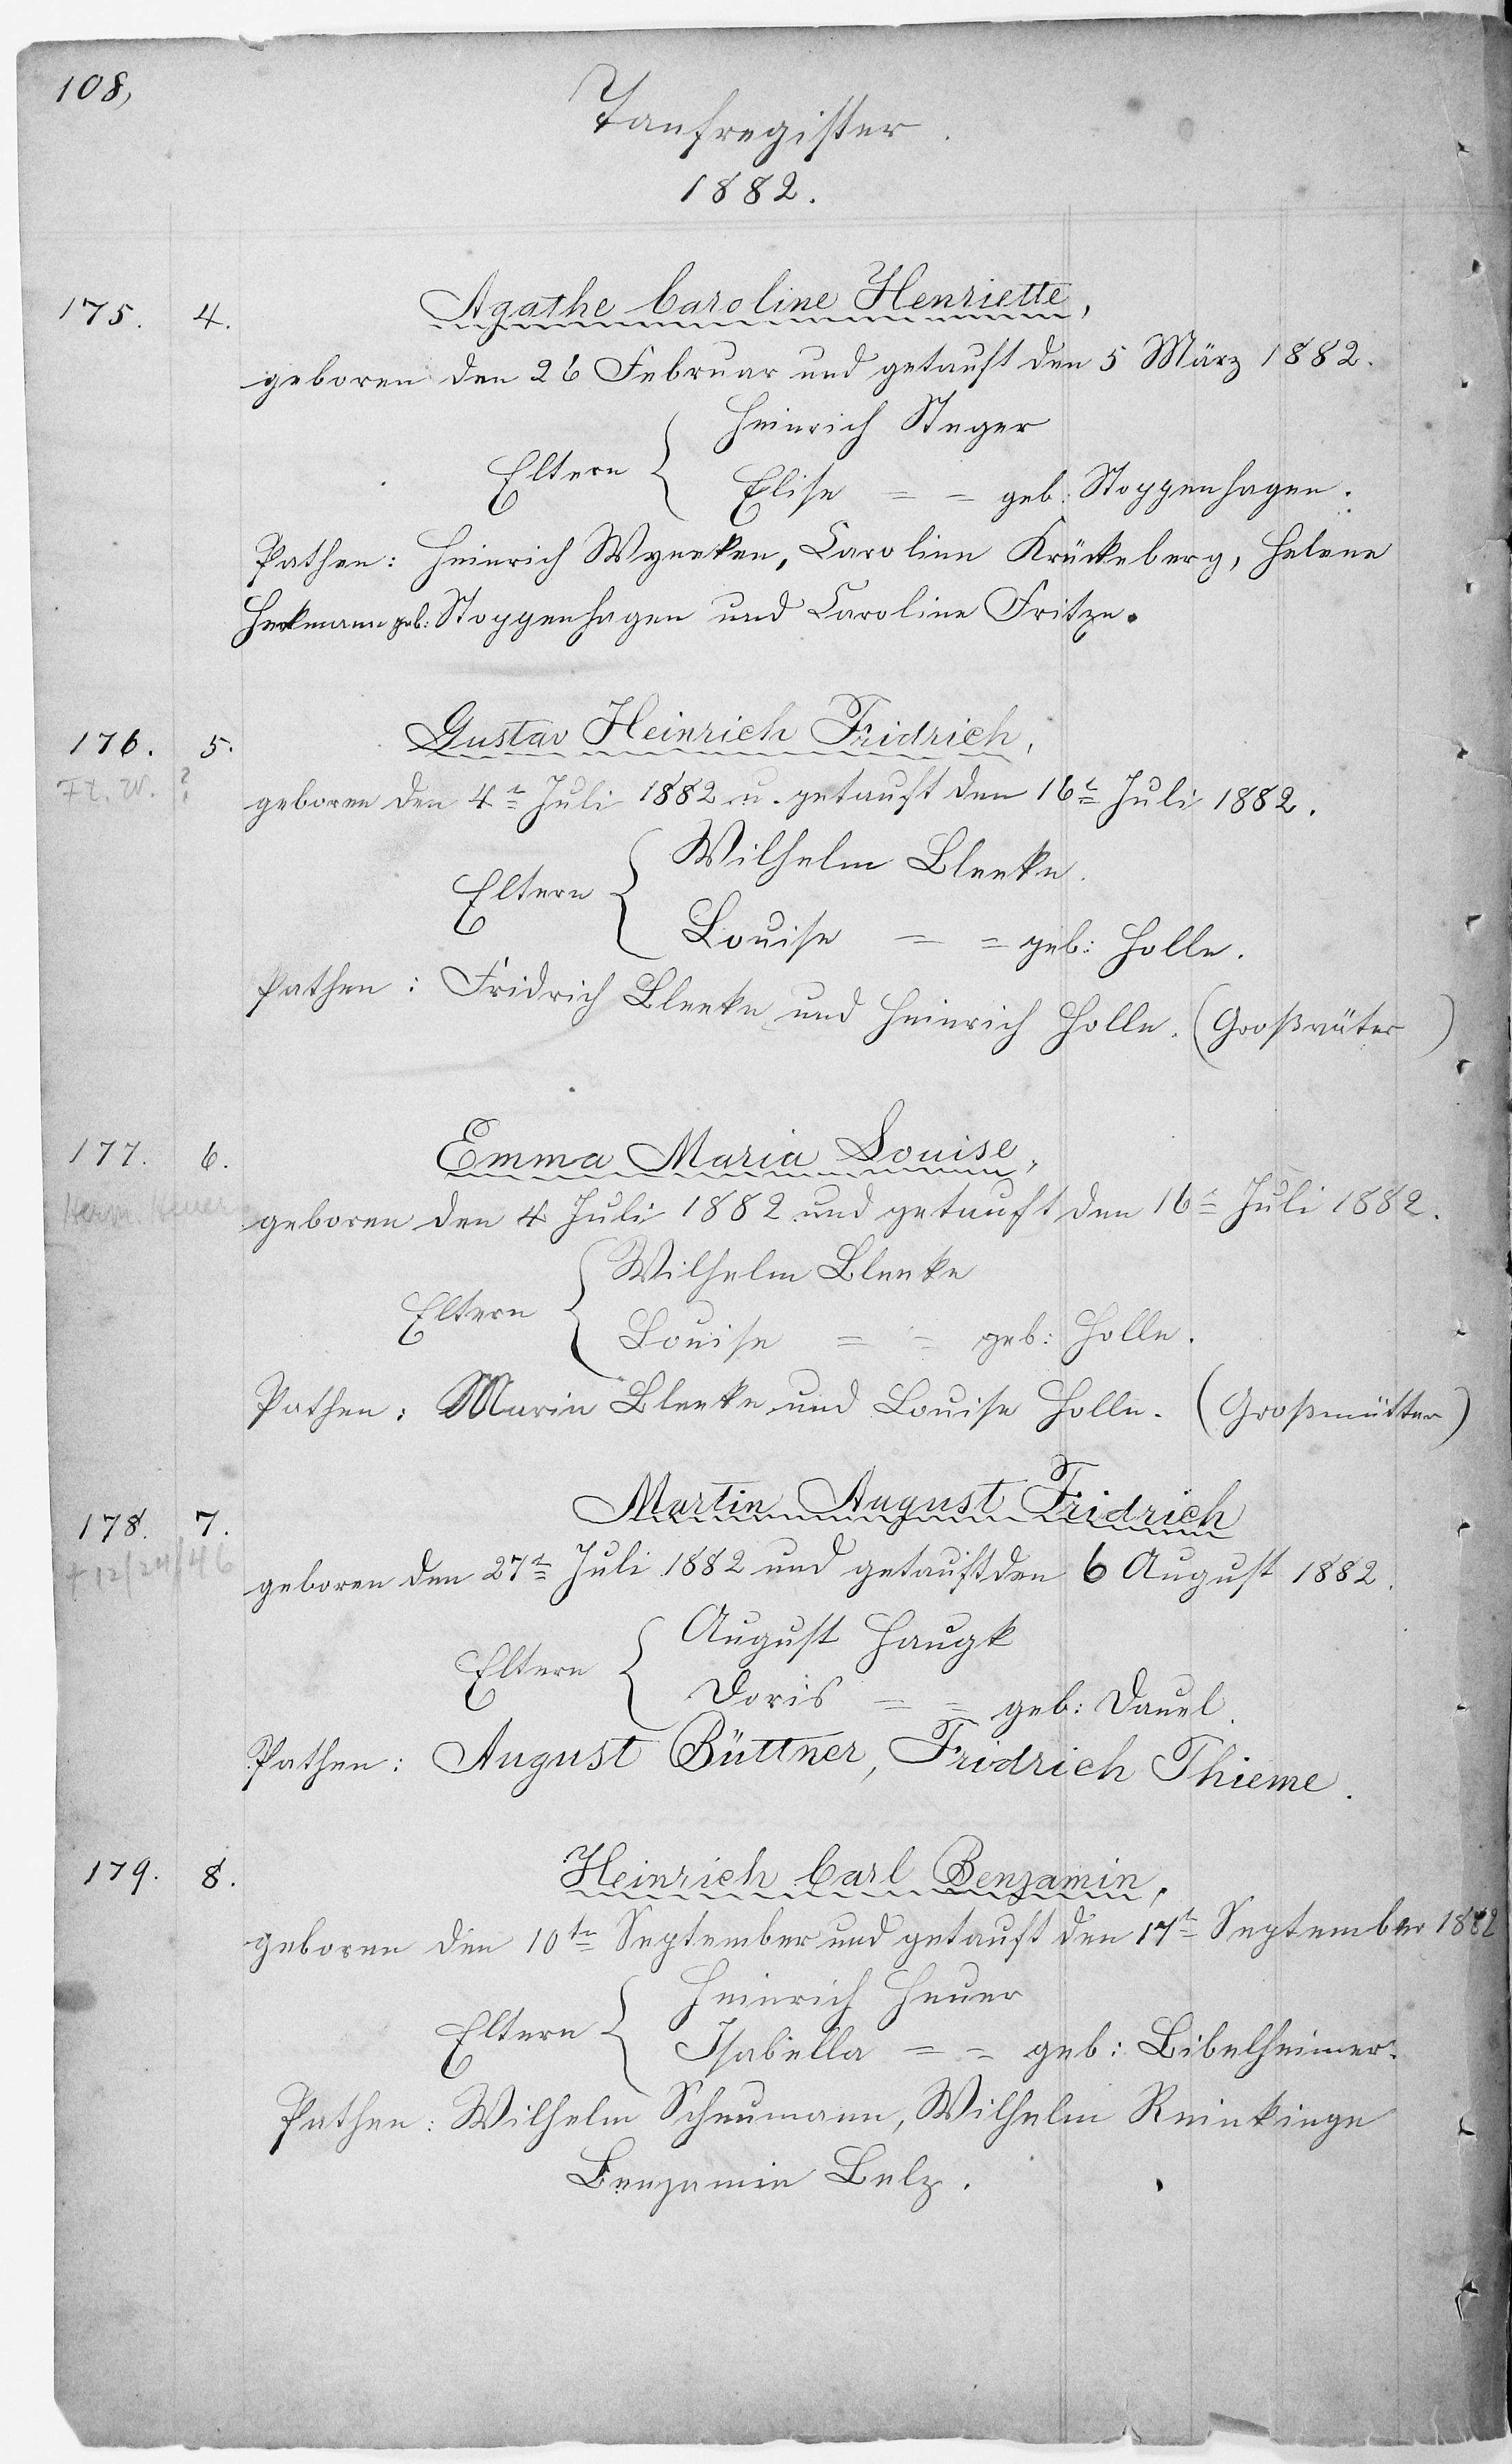 108,
Taufregister.
1882.
175. 4. Agathe Caroline Henriette,
geboren den 26 Februar und getauft den 5 März 1882.
Heinrich Steger
Eltern {
Elise = = geb: Stoppenhagen.
Pathen: Heinrich Wyneken, Caroline Krückeberg, Helene
Heckmann geb: Stoppenhagen und Caroline Fritze.
176. 5. Gustav Heinrich Fridrich,
Ft. W. ?
geboren den 4t Juli 1882 u. getauft den 16t Juli 1882.
Wilhelm Bleeke.
Eltern {
Louise = = geb: Holle.
Pathen: Fridrich Bleeke und Heinrich Holle. (Großväter)
177. 6. Emma Maria Louise,
Herm. Heuer
geboren den 4 Juli 1882 und getauft den 16t Juli 1882.
Wilhelm Bleeke
Eltern {
Louise = = geb: Holle.
Pathen: Maria Bleeke und Louise Holle. (Großmütter)
178. 7. Martin August Fridrich
+ 12/24/46
geboren den 27t Juli 1882 und getauft den 6 August 1882.
August Haugk
Eltern {
Doris = = geb: Dauel.
Pathen: August Büttner, Fridrich Thieme.
179. 8. Heinrich Carl Benjamin,
geboren den 10ten September und getauft den 17t September 1882
Heinrich Heuer
Eltern {
Isabella = = geb: Bibelheimer.
Pathen: Wilhelm Scheumann, Wilhelm Reinkinge
Benjamin Belz.